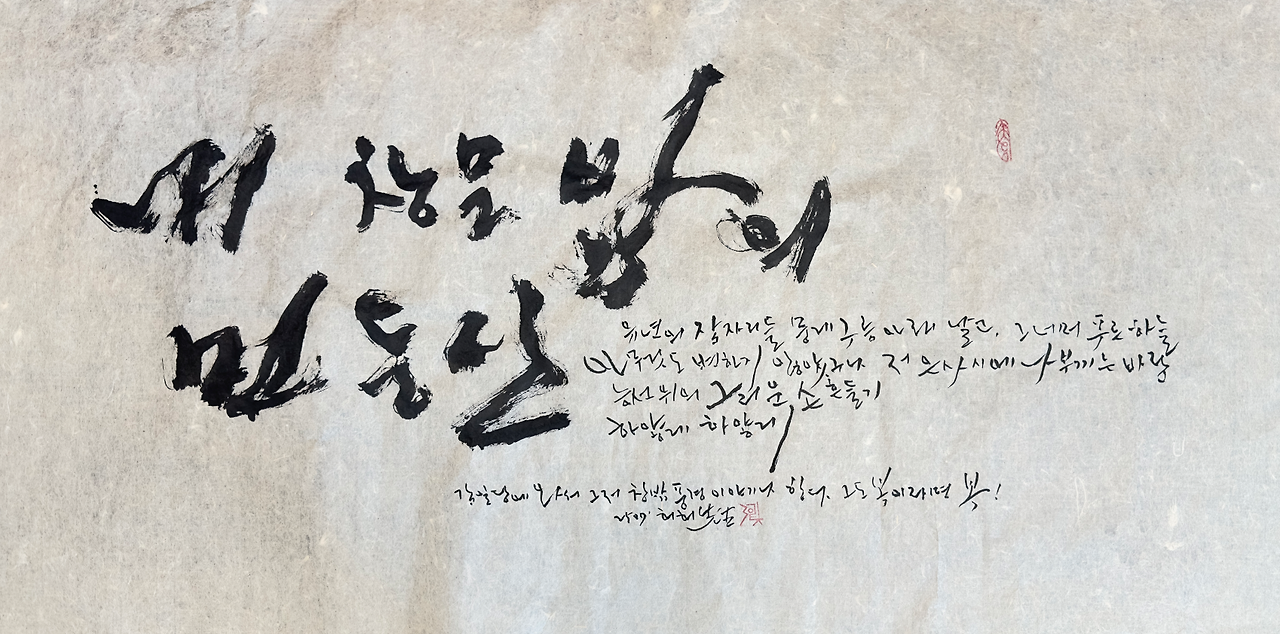 내 창을 밖의
먼 능선
유년의 잠자리들 뭉게구름 아래 날고, 그 너머 푸른 하늘
아무것도 변하지 않았구나 저 은사시에 나부끼는 바람
능선 위의 그리운 손 흔들기
하얗게 하얗게
에 와서 그저 창밖 풍경 이야기나 한다. 그도 복이라면 복!